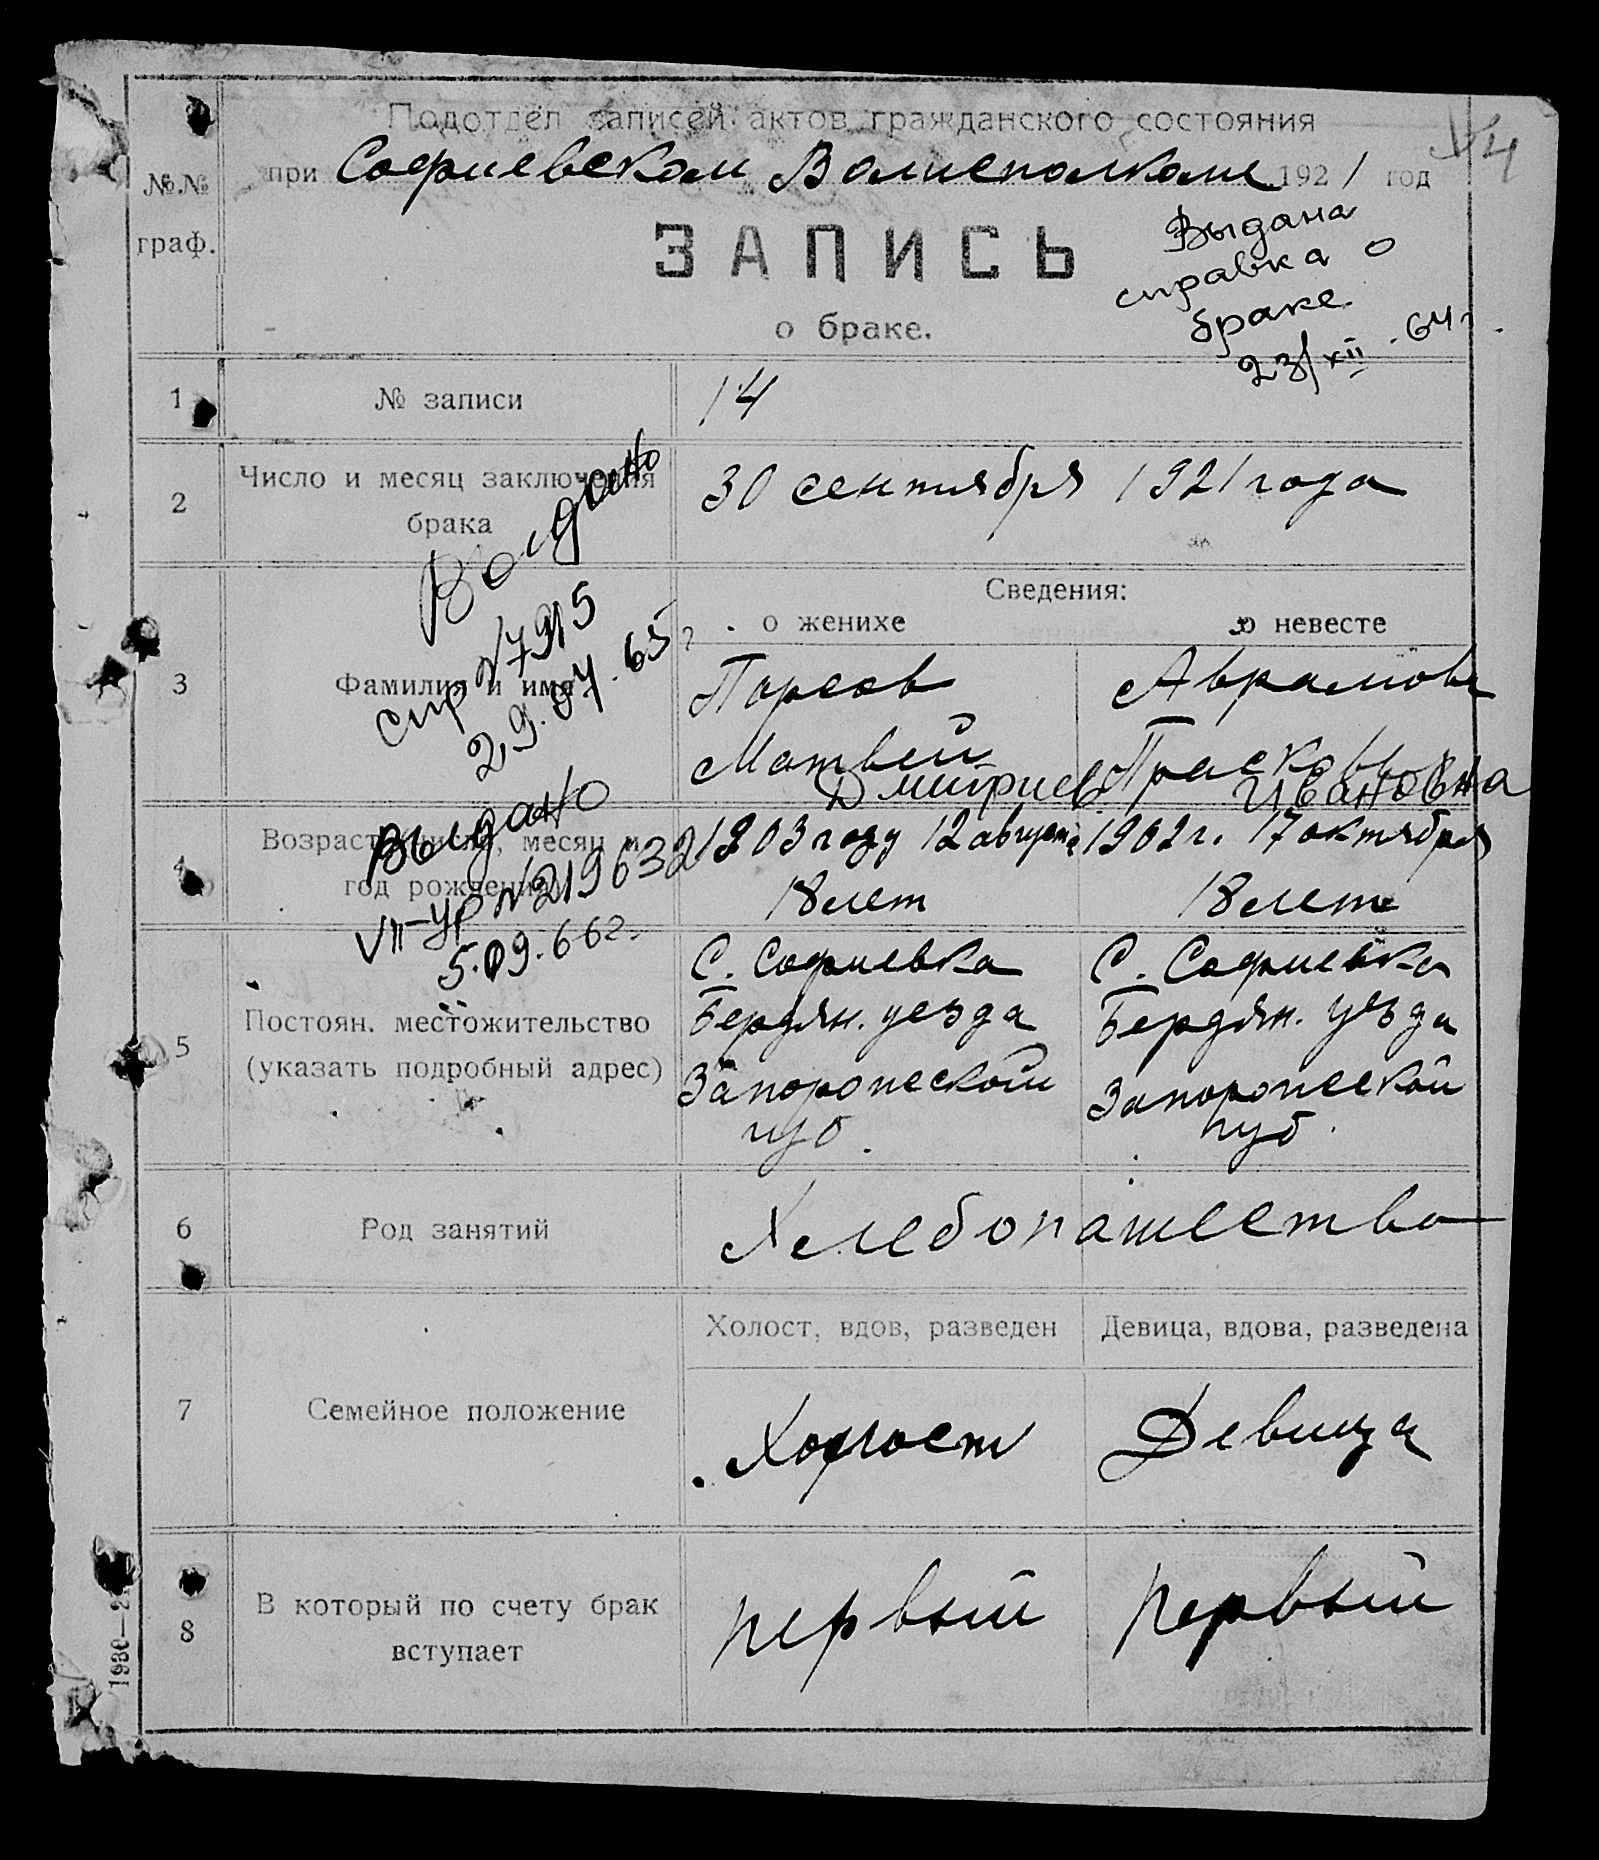 Подотдел записей актов гражданского состояния
№.№
граф.
при Софиевском Волисполкоме 1921 год
14
ЗАПИСЬ
о браке.
Выдана
справка о
браке
23/XII.64г.
1 № записи 14
2 Число и месяц заключения
брака
30 сентября 1921 года
Выдано
спр N 7915
29.04.65г
Сведения:
о женихе о невесте
3 Фамилия и имя
Матвей
Дмитриев.
Аврамова
Ивановна
Выдано
VII-УР N 219632
5.09.66г.
4 Возраст: число, месяц и
год рождения
1903 году 12 августа 1902 г. 17 октября
18 лет 18 лет
5 Постоян. местожительство
(указать подробный адрес)
С. Софиевка С. Софиевка
Бердян. уезда Бердян. уезда
Запорожской Запорожской
губ. губ.
6 Род занятий Хлебопашество
Холост, вдов, разведен Девица, вдова, разведена
7 Семейное положение Холост Девица
8 В который по счету брак
вступает
первый первый